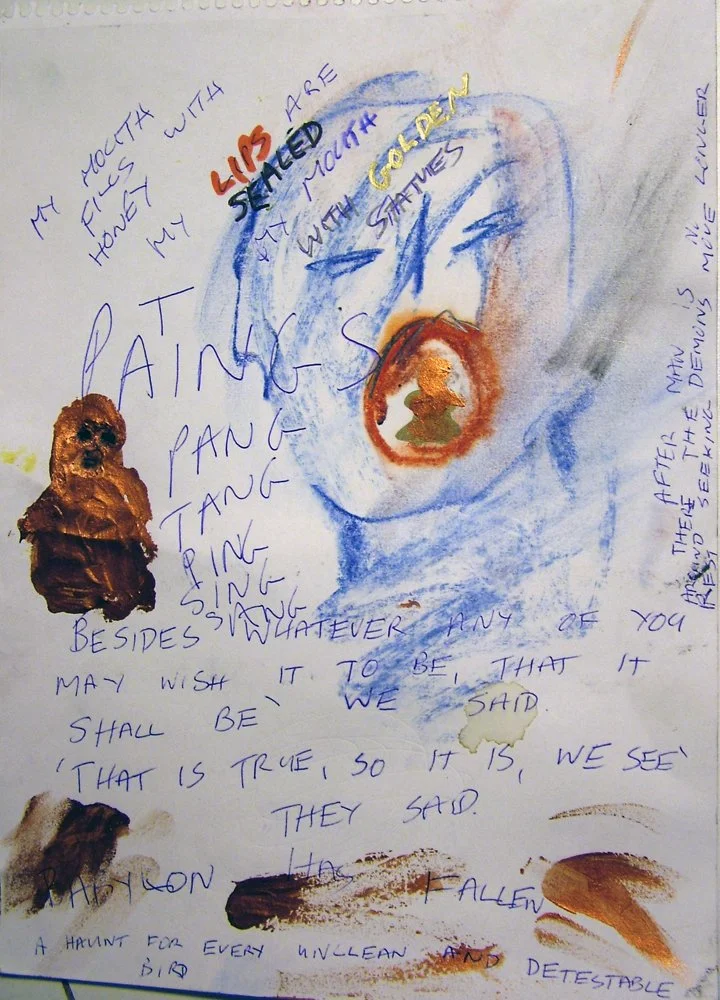 MY MOUTH
FILLS WITH
HONEY
MY LIPS ARE
SEALED
MY MOUTH
WITH GOLDEN
STATUES
PAINTINGS
PANG
TANG
PING
SING
SANG
BESIDES WHATEVER ANY OF YOU
MAY WISH IT TO BE, THAT IT
SHALL BE' WE SAID.
'THAT IS TRUE, SO IT IS, WE SEE'
THEY SAID.
BABYLON HAS FALLEN
A HAUNT FOR EVERY UNCLEAN AND DETESTABLE
BIRD
AFTER MAN IS N
THERE THE DEMONS MOVE LONGER
AROUND SEEKING
REST